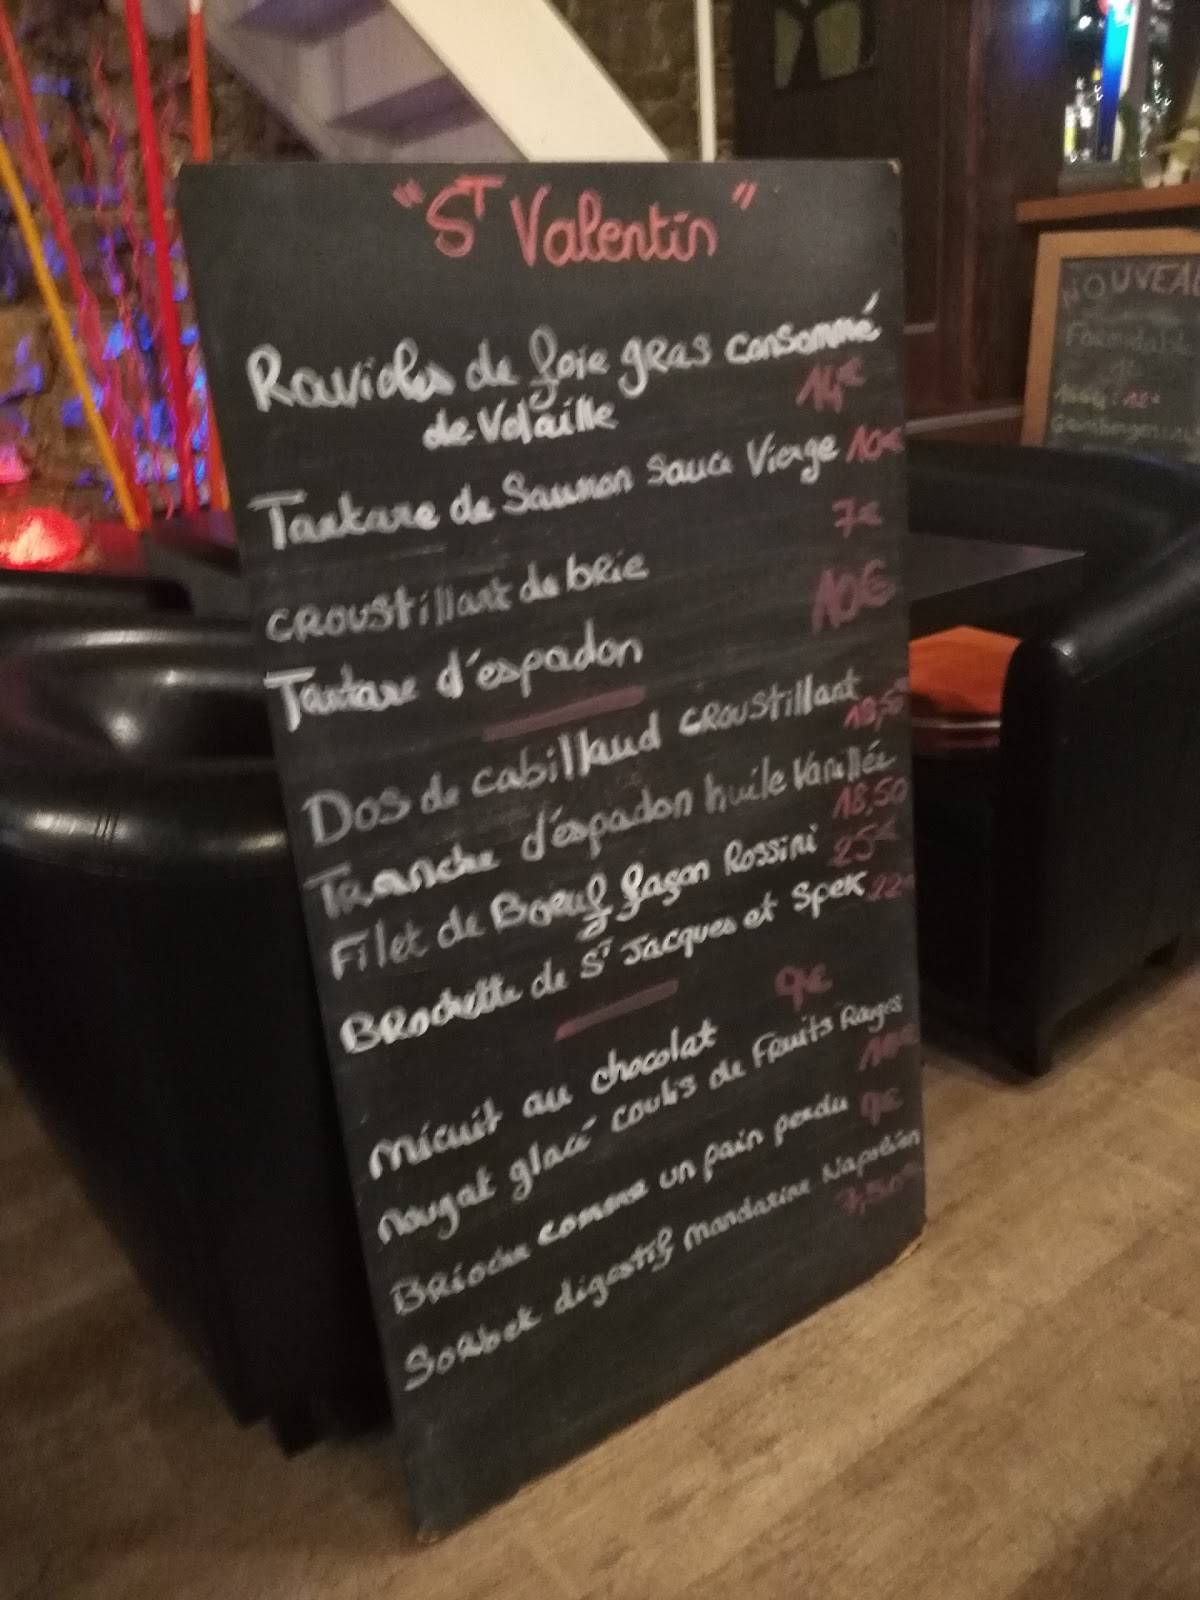 "ST Valentin"
Ravioles de foie gras consommé
de Volaille 14€
Tartare de Saumon Sauce Vierge 10€
croustillant de brie 7€
Tartare d'espadon 10€
Dos de cabillaud croustillant
18,50
Tranche d'espadon huile Vanillée
18,50
Filet de Boeuf façon Rossini 25€
Brochette de ST Jacques et Spek 22€
micuit au chocolat 9€
nougat glacé coulis de Fruits Rouges
10€
Brioche comme un pain perdu 9€
Sorbet digestif mandarine Napoléon
7,50€
NOUVEAU